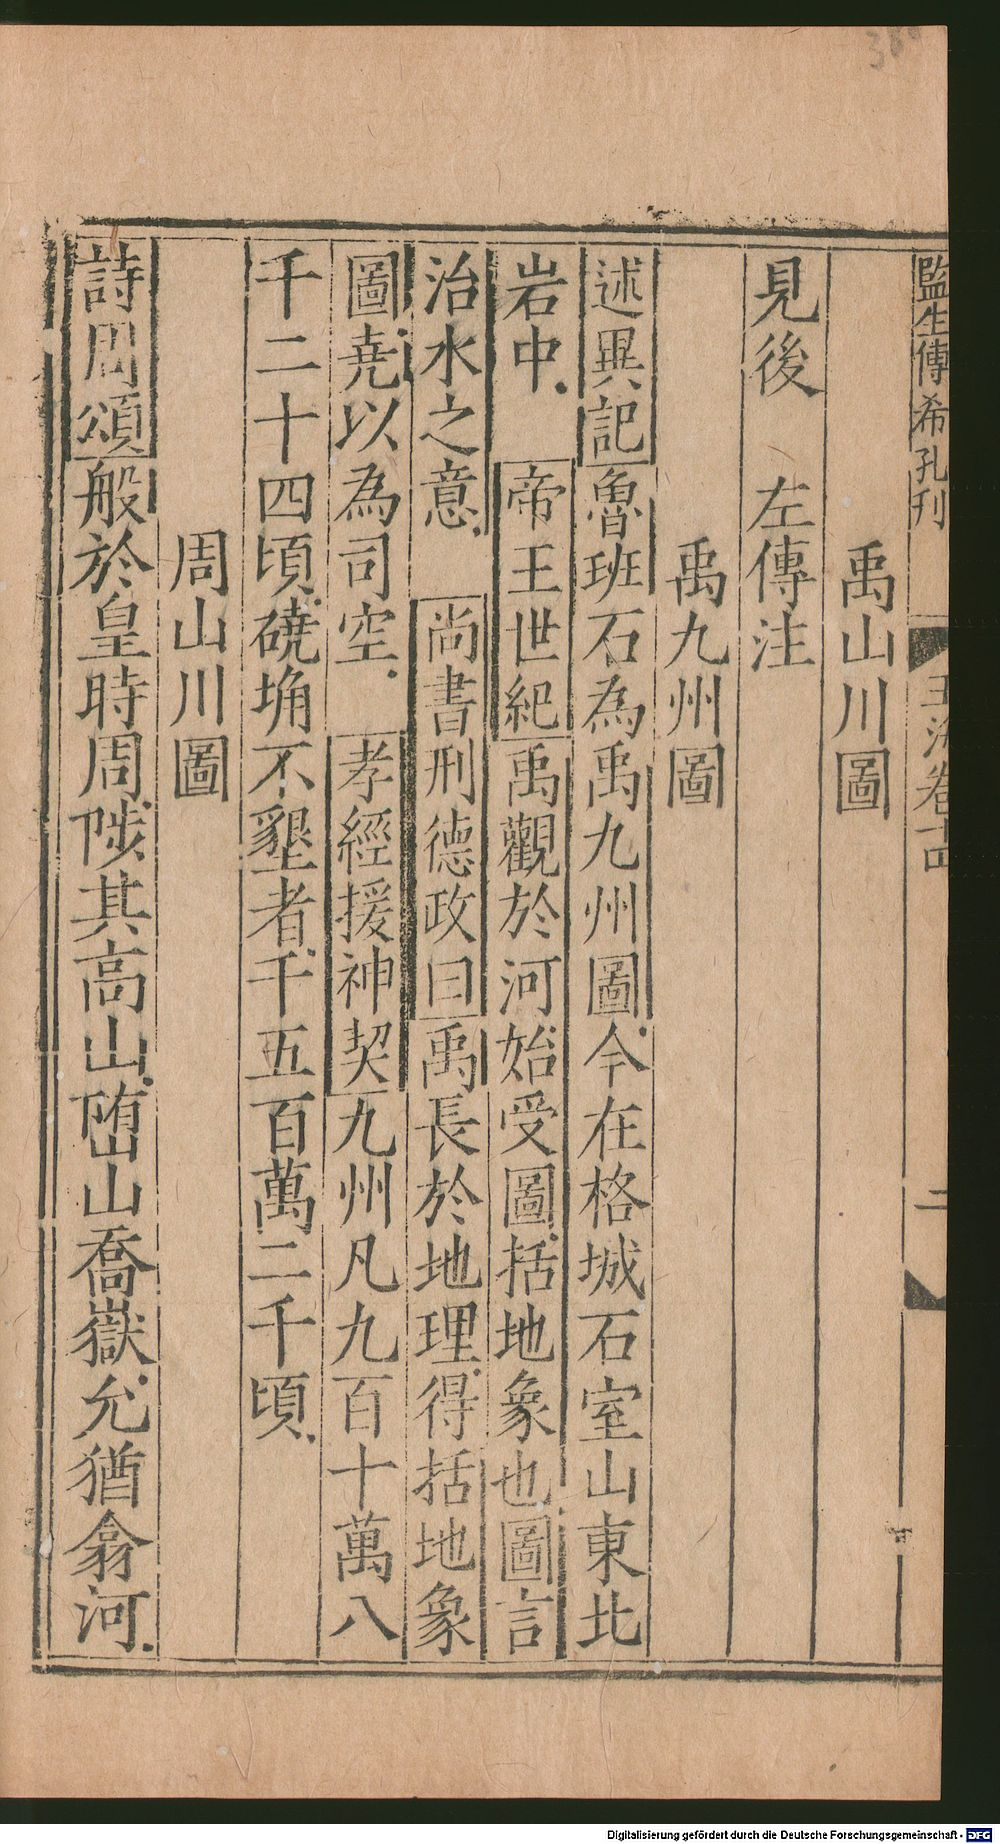 監生傅希孔刋
玉海卷十四
二
禹山川圖
見後 左傳注
禹九州圖
述異記魯班石為禹九州圖今在格城石室山東北
岩中 帝王世紀禹觀於河始受圖括地象也圖言
治水之意 尚書刑德政曰禹長於地理得括地象
圖堯以為司空 孝經援神契九州凡九百十萬八
千二十四頃磽埆不墾者千五百萬二千頃
周山川圖
詩周頌般於皇時周陟其高山嶞山喬嶽允猶翕河
Digitalisierung gefördert durch die Deutsche Forschungsgemeinschaft - DFG